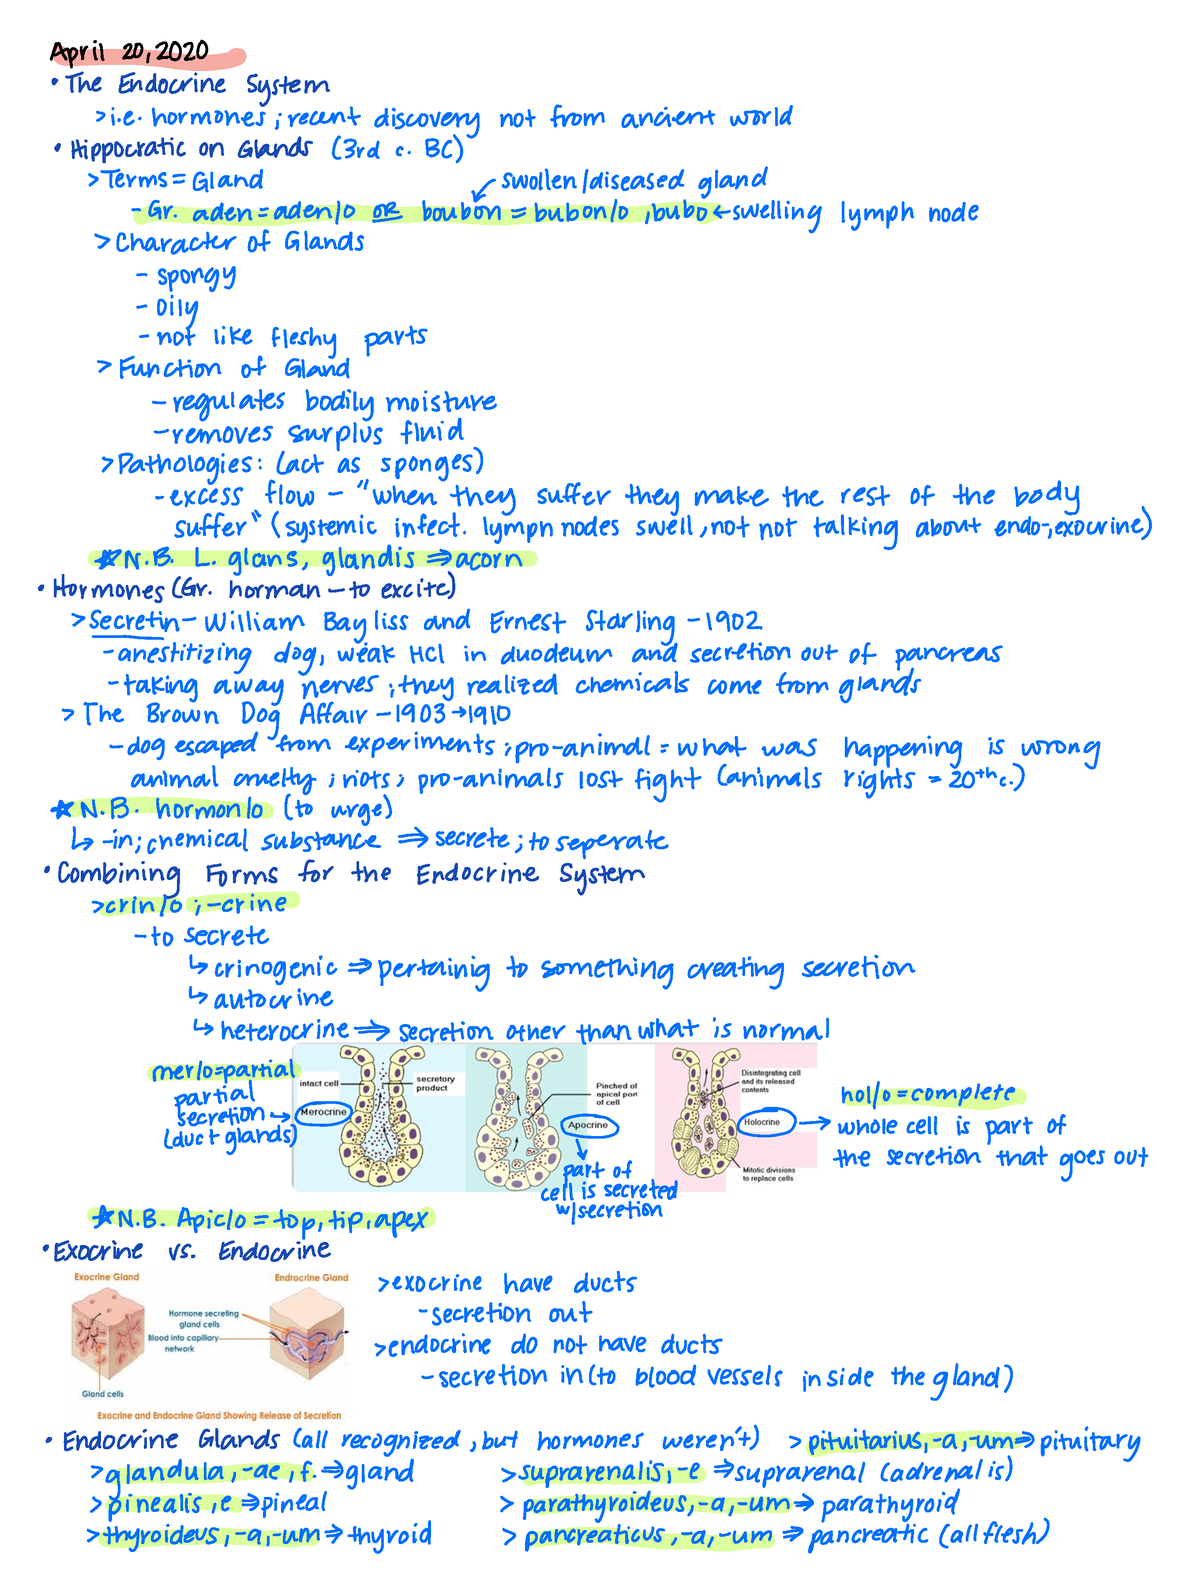 April 20, 2020
• The Endocrine System
> i.e. hormones; recent discovery not from ancient world
• Hippocratic on Glands (3rd c. BC)
> Terms = Gland
swollen/diseased gland
- Gr. aden = aden/o OR boubon = bubon/o, bubo ← swelling lymph node
> Character of Glands
- spongy
- oily
- not like fleshy parts
> Function of Gland
- regulates bodily moisture
- removes surplus fluid
> Pathologies: (act as sponges)
- excess flow - "when they suffer they make the rest of the body
suffer" (systemic infect. lymph nodes swell, not not talking about endo-, exocrine)
★ N.B. L. glans, glandis ⇒ acorn
• Hormones (Gr. horman - to excite)
> Secretin - William Bayliss and Ernest Starling - 1902
- anestitizing dog, weak HCl in duodeum and secretion out of pancreas
- taking away nerves; they realized chemicals come from glands
> The Brown Dog Affair - 1903 → 1910
- dog escaped from experiments; pro-animal = what was happening is wrong
animal cruelty; riots; pro-animals lost fight (animals rights = 20th c.)
★ N.B. hormon/o (to urge)
↳ -in; chemical substance ⇒ secrete; to seperate
• Combining Forms for the Endocrine System
> crin/o; -crine
- to secrete
↳ crinogenic ⇒ pertainig to something creating secretion
↳ autocrine
↳ heterocrine ⇒ secretion other than what is normal
mer/o = partial
partial
secretion →
(duct glands)
intact cell
secretory
product
Merocrine
Pinched of
apical port
of cell
Apocrine
part of
cell is secreted
w/secretion
Disintegrating cell
and its released
contents
Holocrine
Mitotic divisions
to replace cells
hol/o = complete
→ whole cell is part of
the secretion that goes out
★ N.B. Apic/o = top, tip, apex
• Exocrine vs. Endocrine
Exocrine Gland
Endrocrine Gland
Hormone secreting
gland cells
Blood into capillary
network
Gland cells
Exocrine and Endocrine Gland Showing Release of Secretion
> exocrine have ducts
- secretion out
> endocrine do not have ducts
- secretion in (to blood vessels inside the gland)
• Endocrine Glands (all recognized, but hormones weren't) > pituitarius, -a, -um ⇒ pituitary
> glandula, -ae, f. ⇒ gland > suprarenalis, -e ⇒ suprarenal (adrenalis)
> pinealis, e ⇒ pineal > parathyroideus, -a, -um ⇒ parathyroid
> thyroideus, -a, -um ⇒ thyroid > pancreaticus, -a, -um ⇒ pancreatic (all flesh)